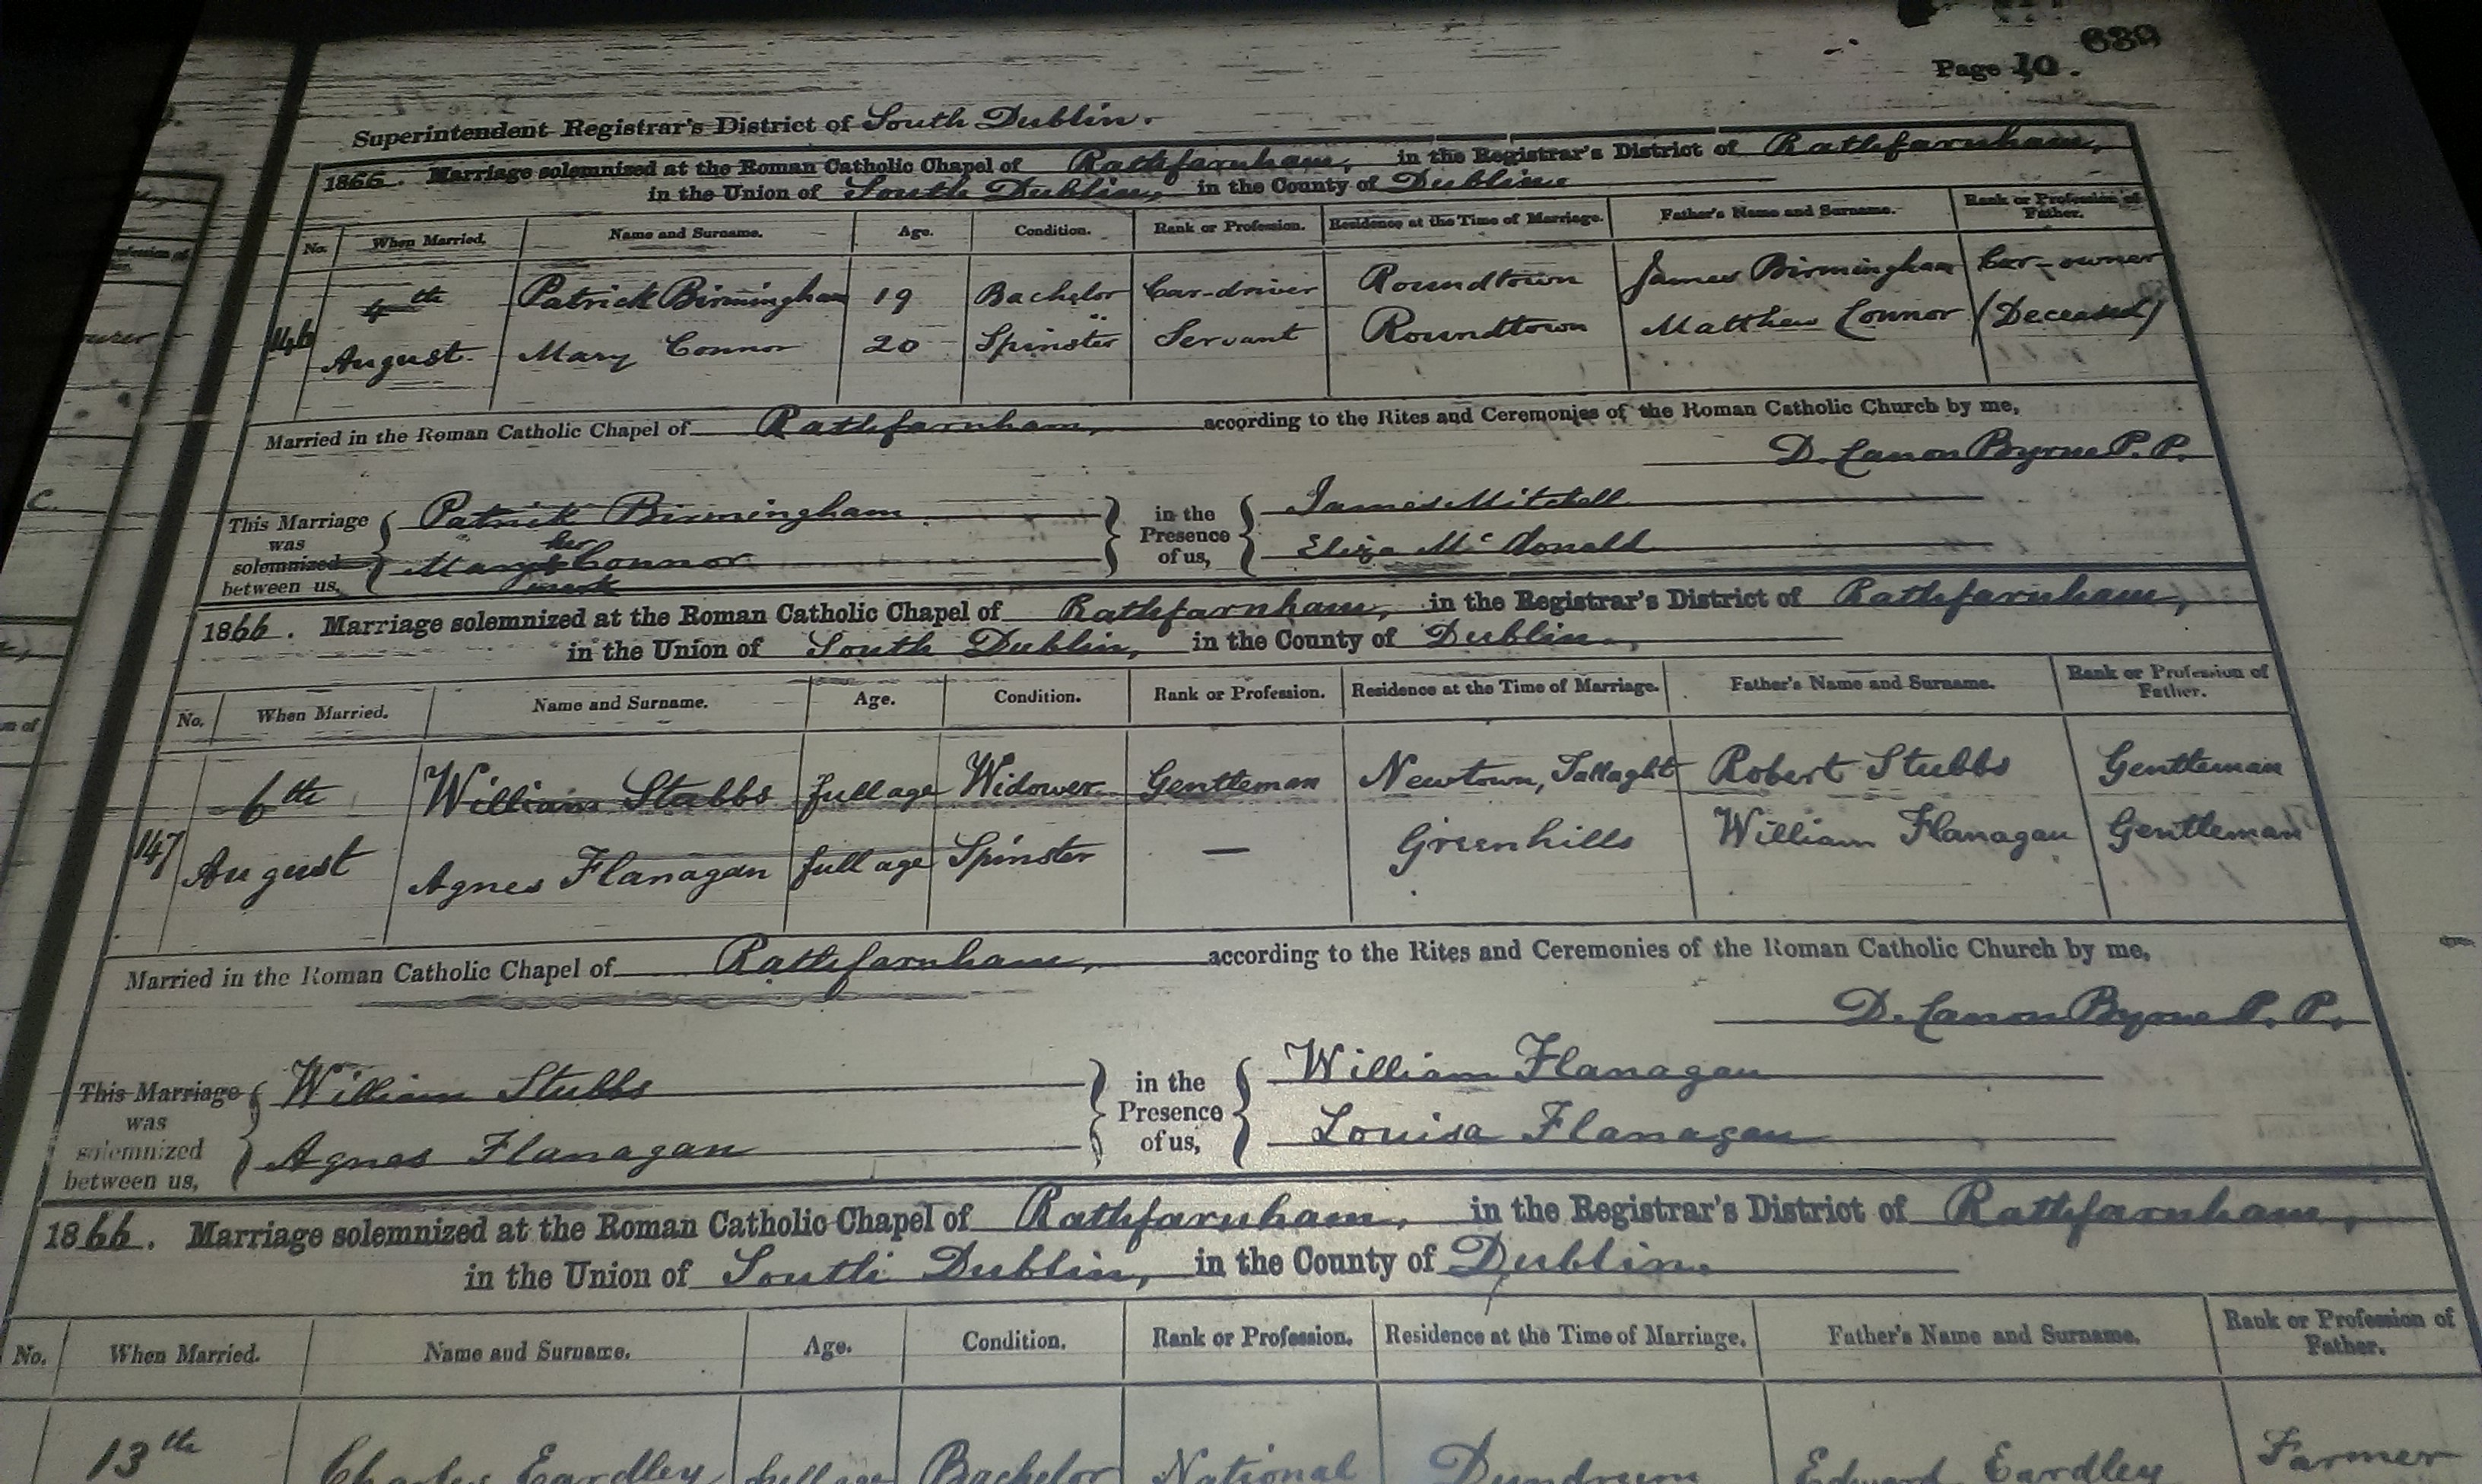 639
Page 10.
Superintendent Registrar's District of South Dublin.
1866. Marriage solemnized at the Roman Catholic Chapel of Rathfarnham, in the Registrar's District of Rathfarnham,
in the Union of South Dublin, in the County of Dublin.
No. When Married. Name and Surname. Age. Condition. Rank or Profession. Residence at the Time of Marriage. Father's Name and Surname. Rank or Profession of Father.
146 4th Patrick Birmingham 19 Bachelor Car-driver Roundtown James Birmingham Car-owner
August. Mary Connor 20 Spinster Servant Roundtown Matthew Connor (Deceased)
Married in the Roman Catholic Chapel of Rathfarnham, according to the Rites and Ceremonies of the Roman Catholic Church by me,
D. Canon Byrne P. P.
This Marriage was solemnized between us, { Patrick Birmingham } in the Presence of us, { James Mitchell
Mary her x mark Connor Eliza McDonald
1866. Marriage solemnized at the Roman Catholic Chapel of Rathfarnham, in the Registrar's District of Rathfarnham,
in the Union of South Dublin, in the County of Dublin,
No. When Married. Name and Surname. Age. Condition. Rank or Profession. Residence at the Time of Marriage. Father's Name and Surname. Rank or Profession of Father.
147 6th William Stubbs full age Widower Gentleman Newtown, Tallaght Robert Stubbs Gentleman
August Agnes Flanagan full age Spinster — Greenhills William Flanagan Gentleman
Married in the Roman Catholic Chapel of Rathfarnham, according to the Rites and Ceremonies of the Roman Catholic Church by me,
D. Canon Byrne P. P.
This Marriage was solemnized between us, { William Stubbs } in the Presence of us, { William Flanagan
Agnes Flanagan Louisa Flanagan
1866. Marriage solemnized at the Roman Catholic Chapel of Rathfarnham, in the Registrar's District of Rathfarnham,
in the Union of South Dublin, in the County of Dublin.
No. When Married. Name and Surname. Age. Condition. Rank or Profession. Residence at the Time of Marriage. Father's Name and Surname. Rank or Profession of Father.
13th Charles Eardley full age Bachelor National Dundrum Edward Eardley Farmer